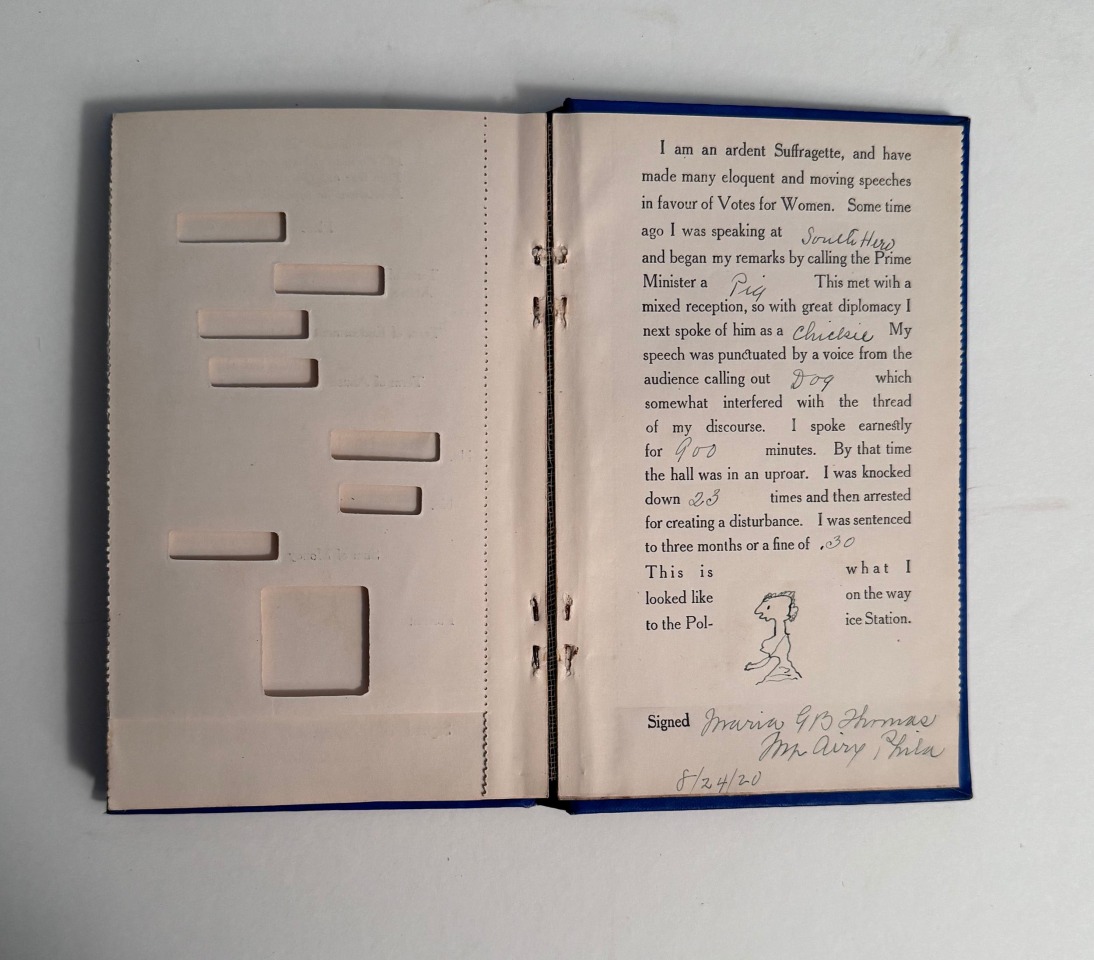 I am an ardent Suffragette, and have
made many eloquent and moving speeches
in favour of Votes for Women. Some time
ago I was speaking at South Hero
and began my remarks by calling the Prime
Minister a Pig This met with a
mixed reception, so with great diplomacy I
next spoke of him as a Chickie My
speech was punctuated by a voice from the
audience calling out Dog which
somewhat interfered with the thread
of my discourse. I spoke earnestly
for 900 minutes. By that time
the hall was in an uproar. I was knocked
down 23 times and then arrested
for creating a disturbance. I was sentenced
to three months or a fine of .30
This is what I
looked like on the way
to the Pol- ice Station.
Signed Maria G B Thomas
Airy Phila
8/24/20